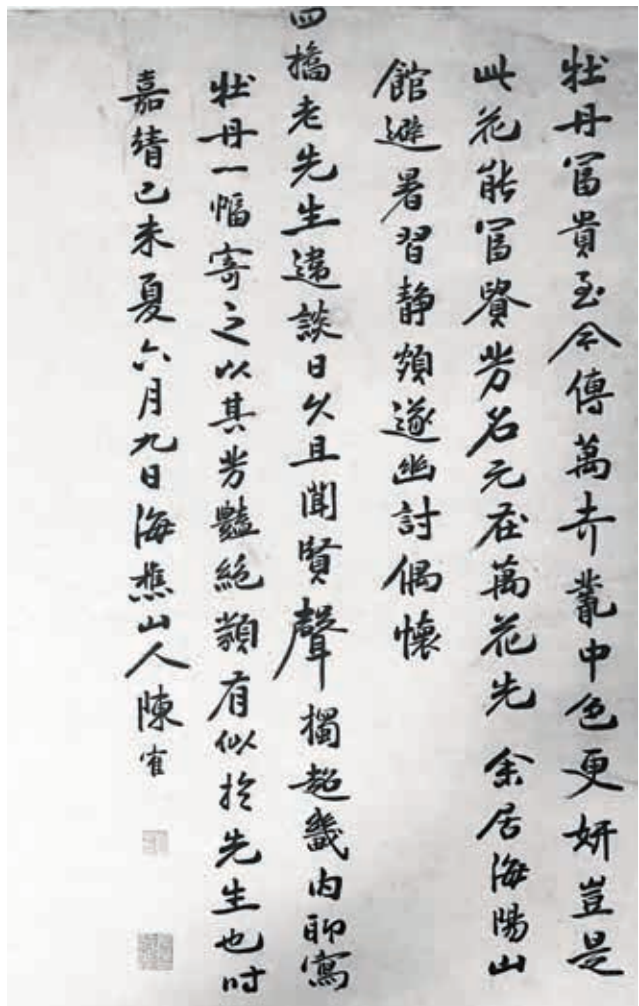 牡丹冨貴至今傳萬卉叢中色更妍豈是
此花能冨貴芳名元在萬花先 余居海陽山
館避暑習静頗遂幽討偶懷
四橋老先生違談日久且聞賢聲獨超畿内聊寫
牡丹一幅寄之以其芳豔絶類有似於先生也时
嘉靖己未夏六月九日海樵山人陳